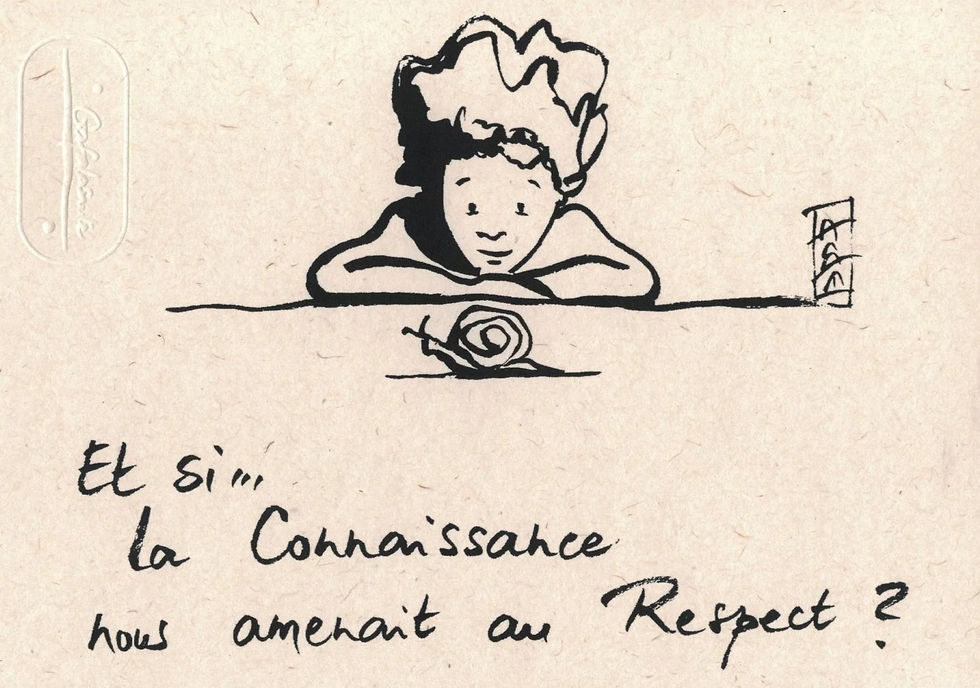 Et si...
la Connaissance
nous amenait au Respect ?